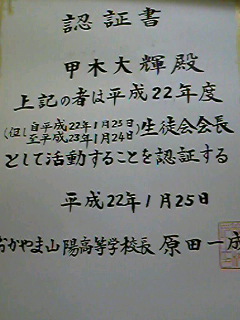 認証書
甲木大輝殿
上記の者は平成22年度
(但し自平成22年1月25日
至平成23年1月24日)生徒会会長
として活動することを認証する
平成22年1月25日
おかやま山陽高等学校長 原田一成